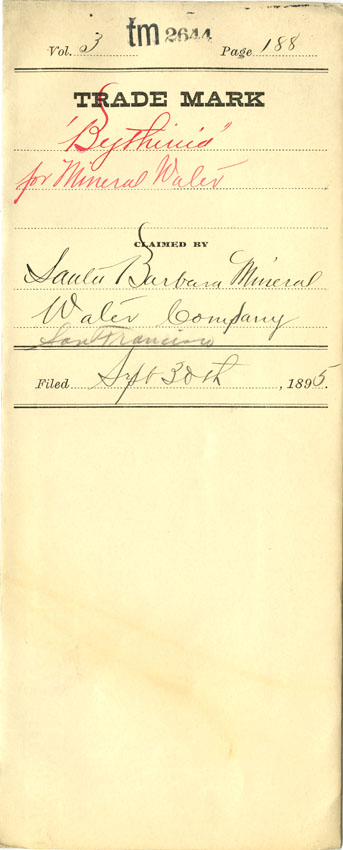 Vol. 3 tm 2644 Page 188
TRADE MARK
"Bythinia"
for Mineral Water
CLAIMED BY
Santa Barbara Mineral
Water Company
San Francisco
Filed Sept 30th, 1895.